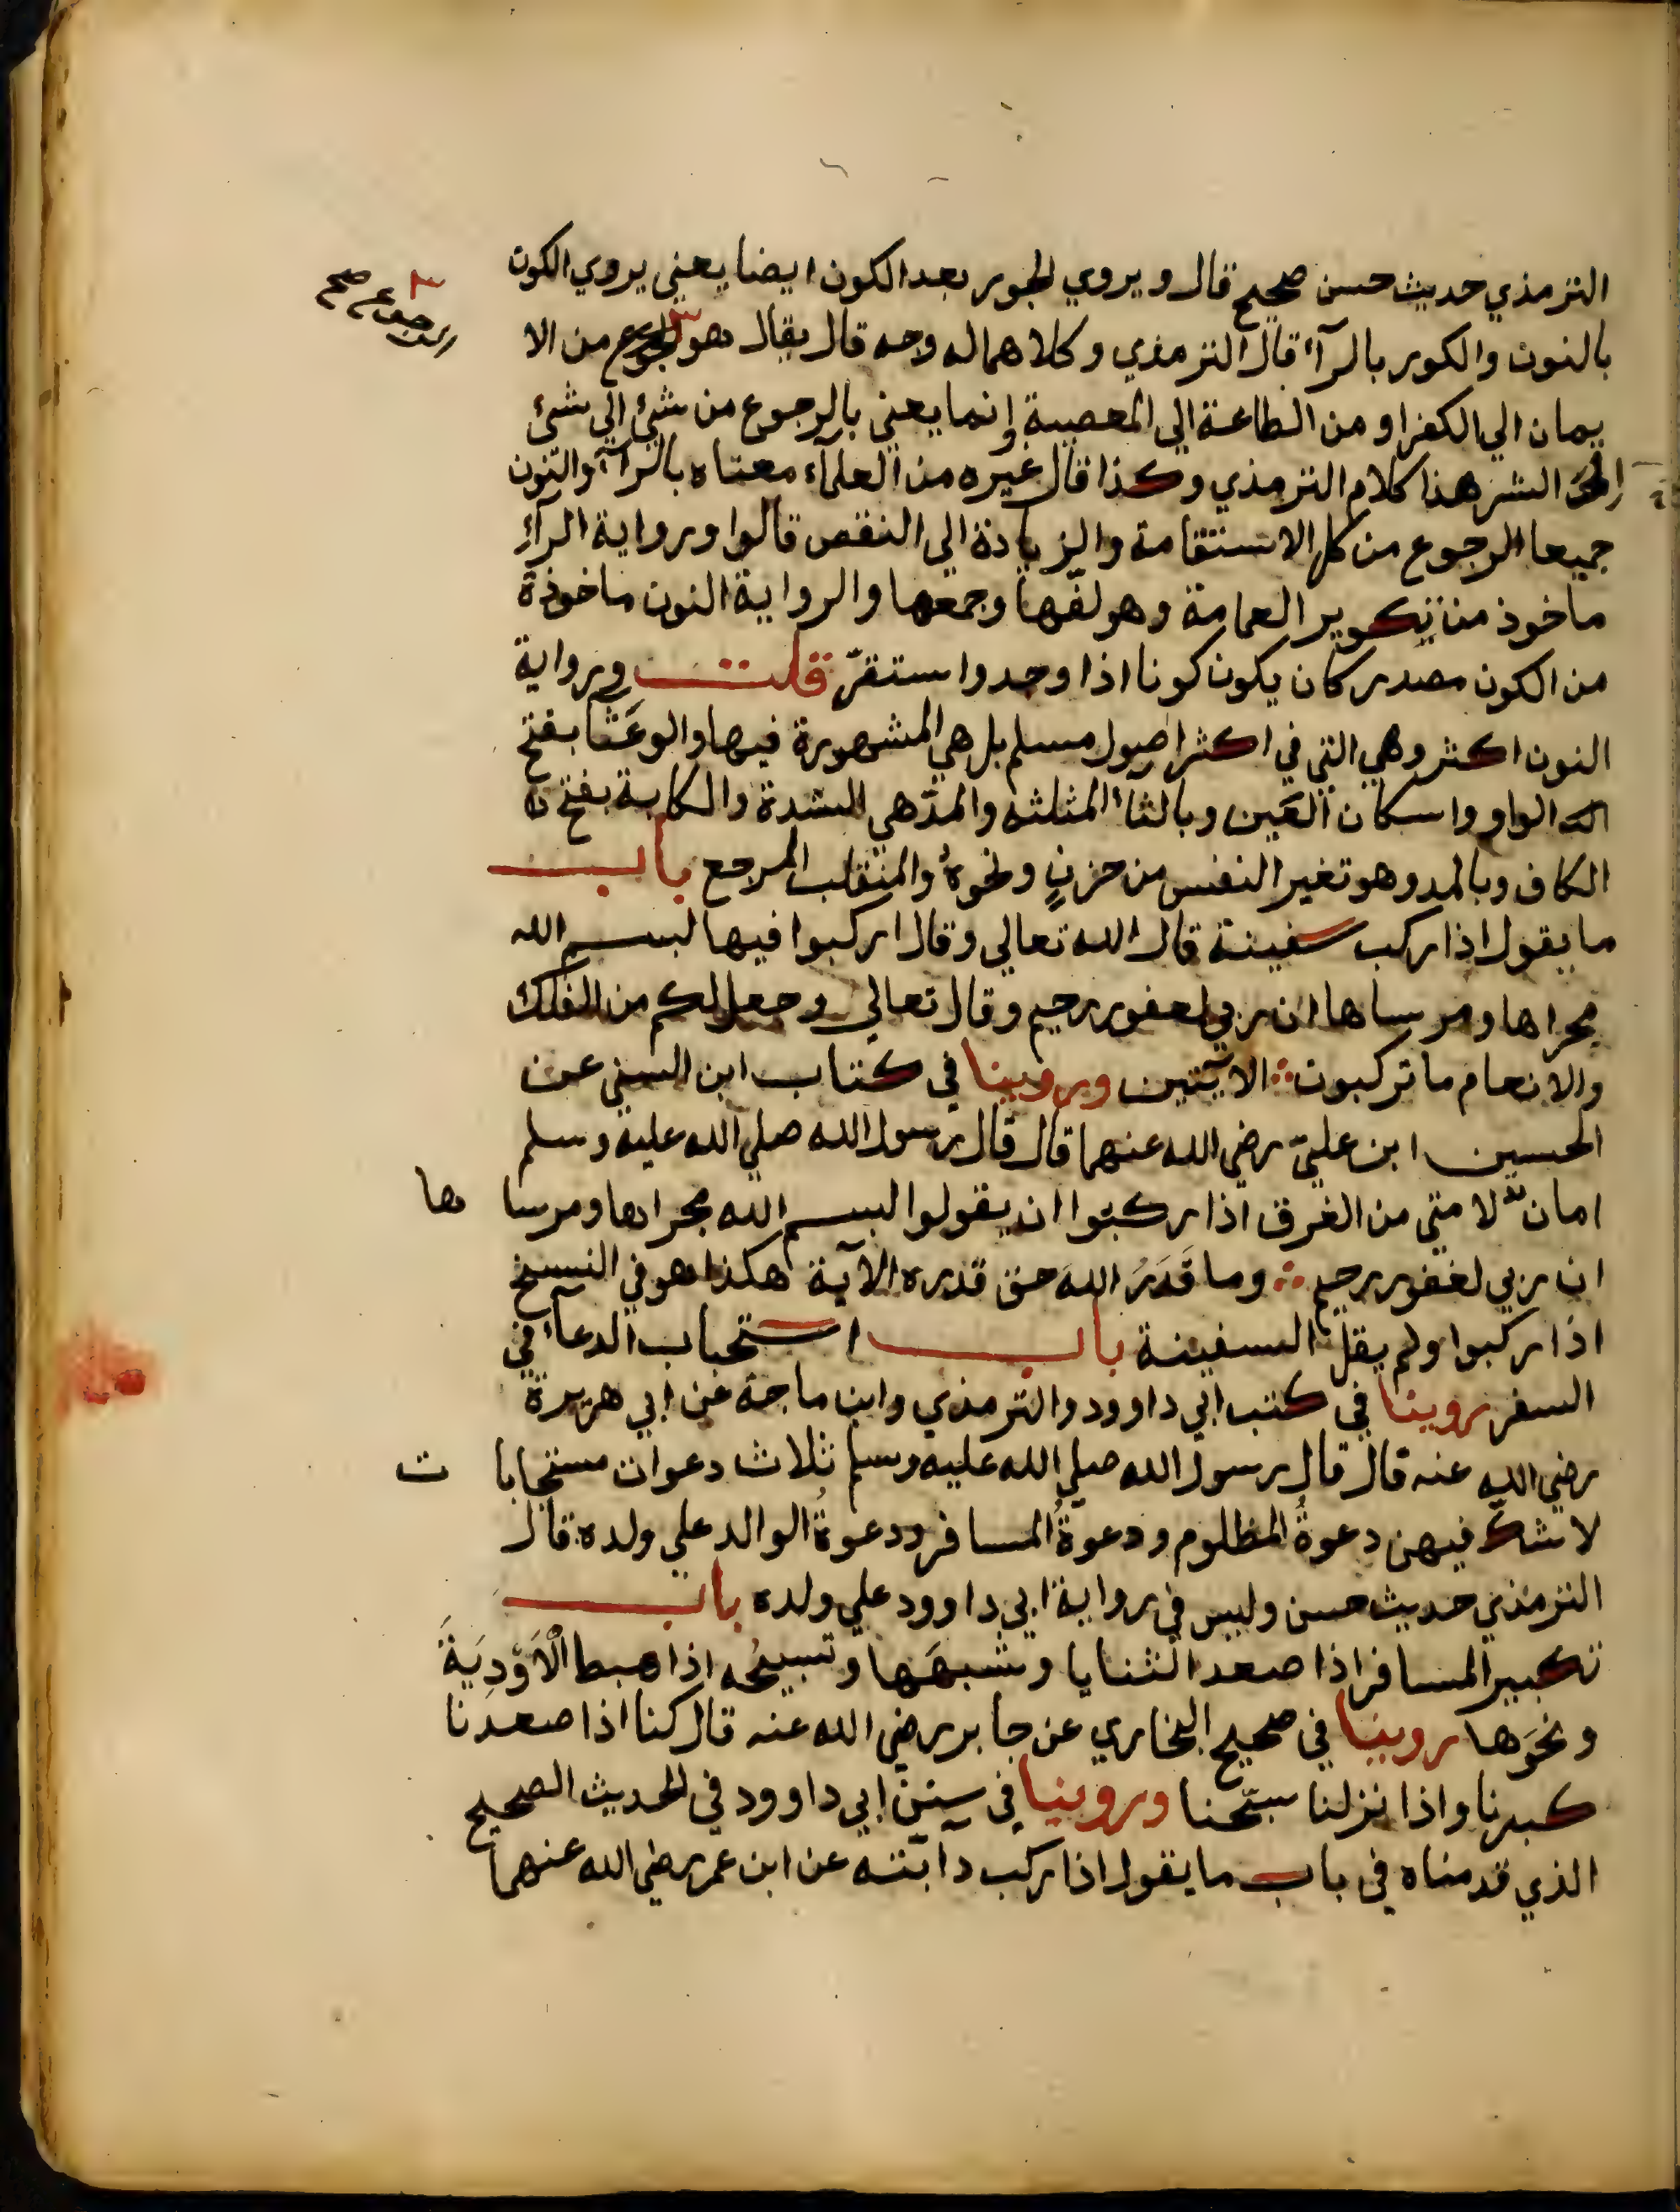 الترمذي حديث حسن صحيح قال ويروي الحور بعد الكون ايضا يعني يروي الكون
بالنون والكور بالرآء قال الترمذي وكلاهما له وجه قال يقال هو من الا
الرجوع صح
يمان الي الكفر او من الطاعة الي المعصية إنما يعني بالرجوع من شيئ الي شيئ
من الشر هذا كلام الترمذي وكذا قال غيره من العلمآء معناه بالرآء والنون
جميعا الرجوع من الاستقامة والزيادة الي النقص قالوا ورواية الرآء
ماخوذ من تكوير العمامة وهو لفّها وجمعها والرواية النون ماخوذة
من الكون مصدر كان يكون كونا اذا وجد واستقرّ قلت ورواية
النون اكثر وهي التي في اكثر اصول مسلم بل هي المشهورة فيها والوعثا بفتح
الواو واسكان العين وبالثاء المثلثه والمدّ هي الشدة والكابة بفتح
الكاف وبالمد وهو تغير النفس من حزنٍ ونحوهٔ والمنقلب المرجع باب
ما يقول اذا ركب سفينة قال الله تعالي وقال اركبوا فيها لبسم الله
مجراها ومرساها ان ربي لغفور رحيم وقال تعالي وجعل لكم من الفلك
والانعام ما تركبون الايتين وروينا في كتاب ابن السني عن
الحسين ابن عليّ رضي الله عنهما قال قال رسول الله صلي الله عليه وسلم
امان لامتي من الغرق اذا ركبوا ان يقولوا لبسم الله مجراها ومرسا ها
ان ربي لغفور رحيم وما قَدَرُ اللهَ حق قدره الآية هكذا هو في النسخ
اذا ركبوا ولم يقل السفينة باب استحباب الدعآء في
السفر روينا في كتب ابي داوود والترمذي وابن ماجة عن ابي هريرة
رضي الله عنه قال قال رسول الله صلي الله عليه وسلم ثلاث دعوات مستجابا ت
لا شكّ فيهن دعوةُ المظلوم ودعوةُ المسافر ودعوةُ الوالد علي ولده قال
الترمذي حديث حسن وليس في رواية ابي داوود علي ولده باب
تكبير المسافر اذا صعد الثنايا وشبهَها وتسبيحُه اذا هبط الْاَوْدِيَةَ
ونحوَها روينا في صحيح البخاري عن جابر رضي الله عنه قال كنا اذا صعدنا
كبرنا واذا نزلنا سبّحنا وروينا في سنن ابي داوود في الحديث الصحيح
الذي قدمناه في باب ما يقول اذا ركب دآبته عن ابن عمر رضي الله عنهما